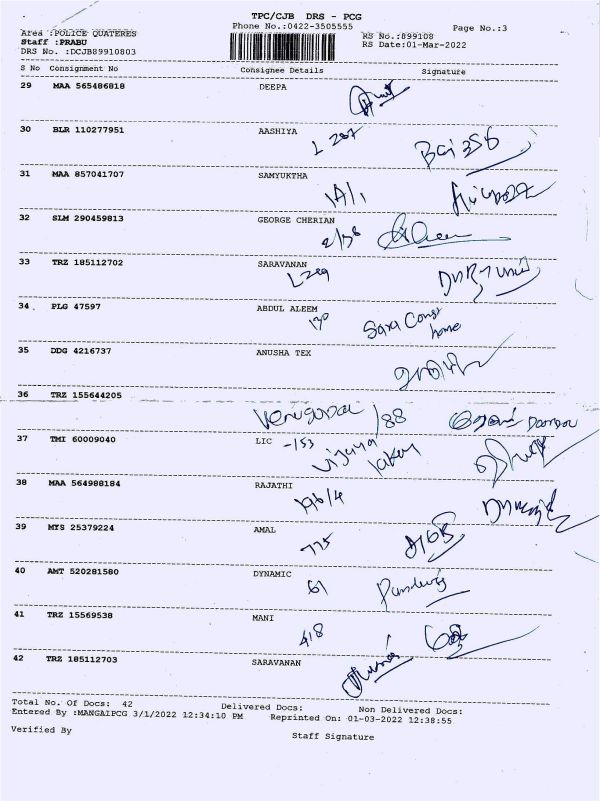 TPC/CJB DRS - PCG
Phone No.:0422-3505555 Page No.:3
Area :POLICE QUATERES RS No.:899108
Staff :PRABU RS Date:01-Mar-2022
DRS No. :DCJB89910803
S No Consignment No Consignee Details Signature
29 MAA 565486818 DEEPA
30 BLR 110277951 AASHIYA
L 287
31 MAA 857041707 SAMYUKTHA
32 SLM 290459813 GEORGE CHERIAN
33 TRZ 185112702 SARAVANAN
L 289
34 . PLG 47597 ABDUL ALEEM
Sara Const
home
35 DDG 4216737 ANUSHA TEX
36 TRZ 155644205
Venugopal /88
37 TMI 60009040 LIC -153
Vijaya
38 MAA 564988184 RAJATHI
196/4
39 MYS 25379224 AMAL
775
40 AMT 520281580 DYNAMIC
61
41 TRZ 15569538 MANI
418
42 TRZ 185112703 SARAVANAN
Total No. Of Docs: 42 Delivered Docs: Non Delivered Docs:
Entered By :MANGAIPCG 3/1/2022 12:34:10 PM Reprinted On: 01-03-2022 12:38:55
Verified By Staff Signature